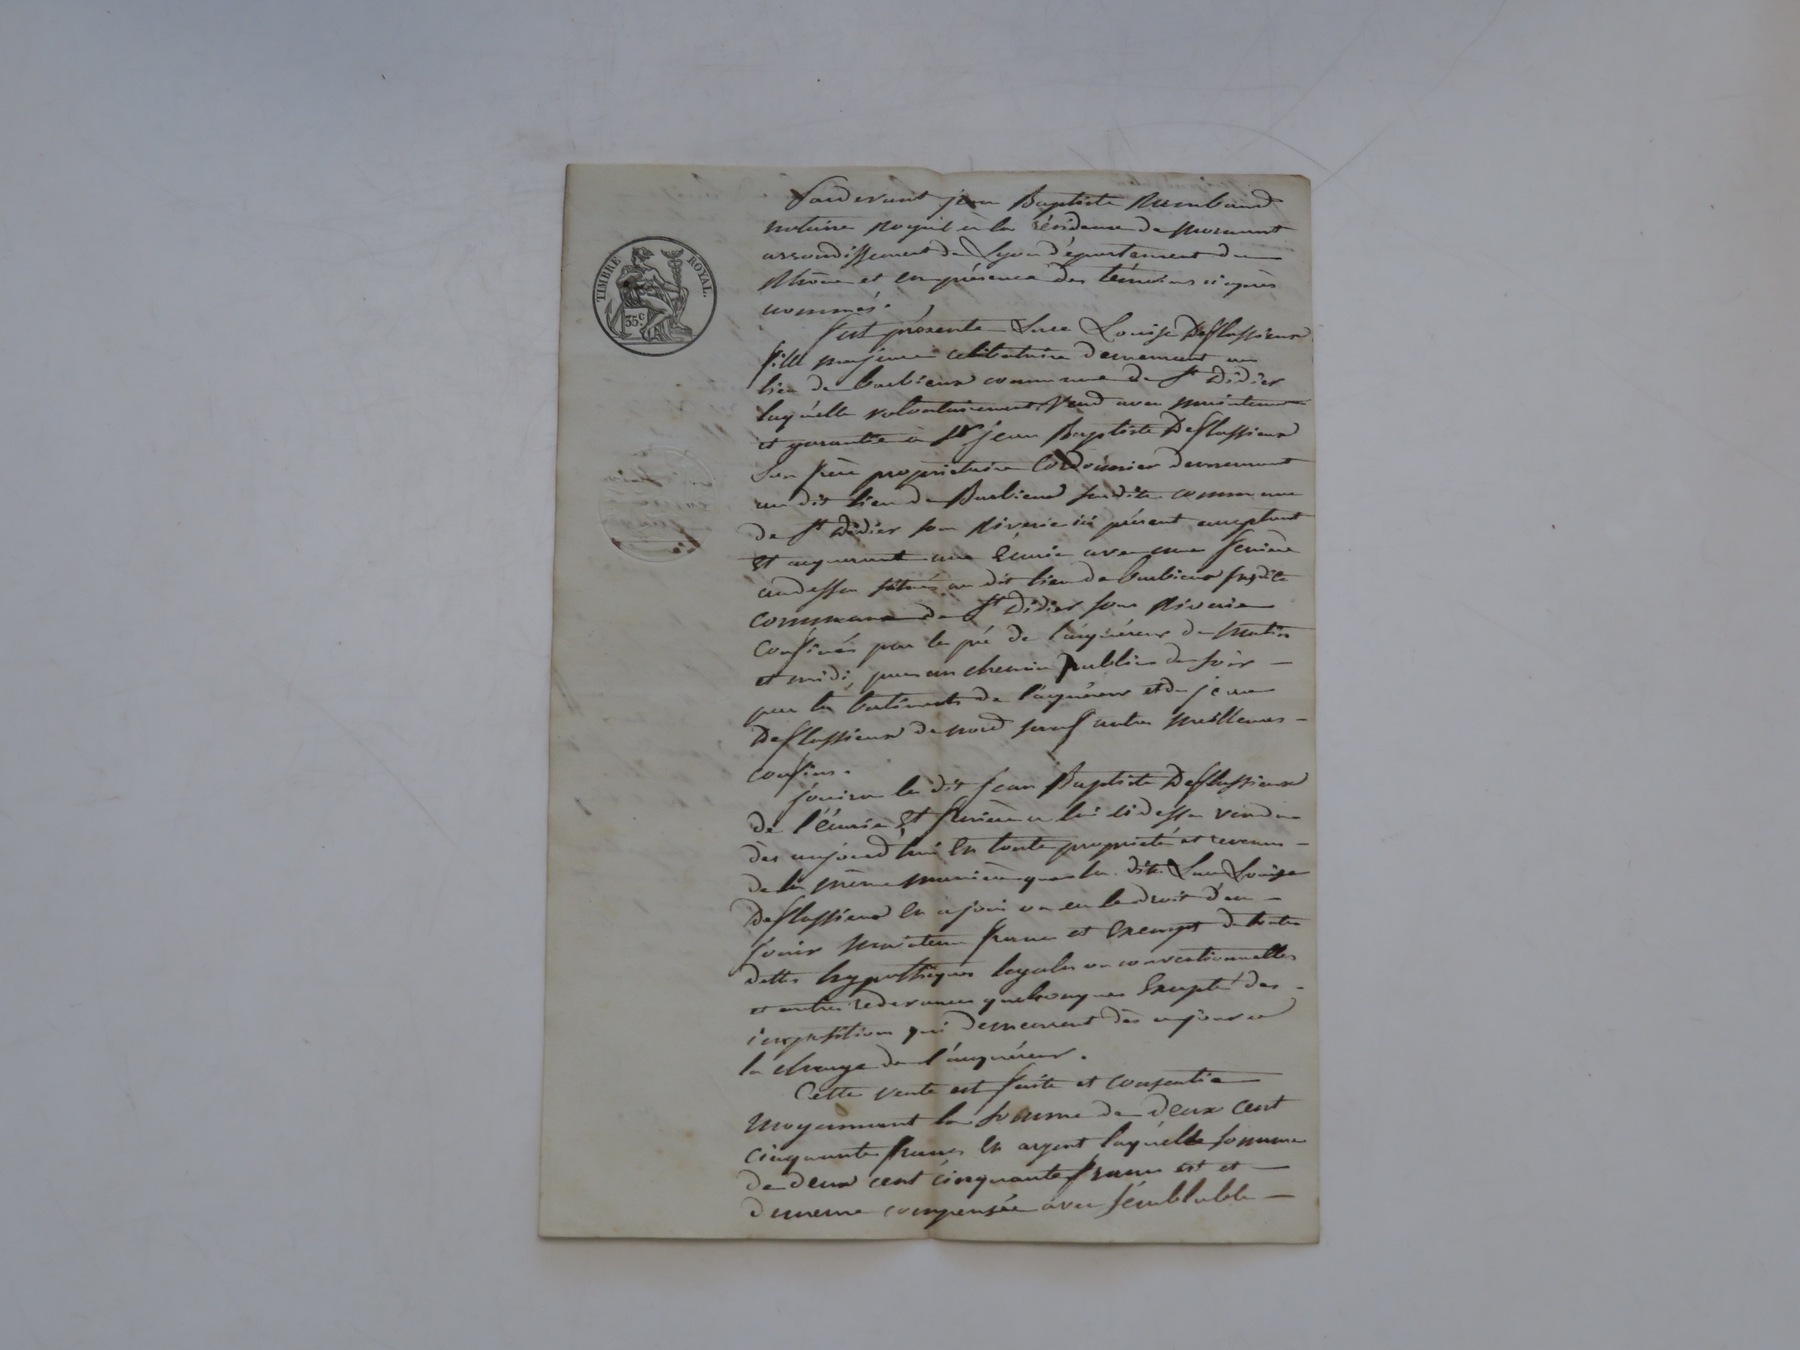 TIMBRE ROYAL.
35 c
Pardevant jean Baptiste Rambaud
notaire royal à la résidence de Mornant
arrondissement de Lyon département du
Rhône et en présence des témoins ci après
nommés.
fut présente Luce Louise Deflassieux
fille majeure celibataire demeurant au
lieu de barbieux commune de St Didier
laquelle volontairement vend avec maintenue
et garantie à Sr jean Baptiste Deflassieux
son frère propriétaire cordonnier demeurant
au dit lieu de Barbieux susdite commune
de St Didier sou Riverie ici présent acceptant
et acquerant une écurie avec une feniere
audessu situés au dit lieu de barbieux susdite
commune de St Didier sou Riverie
confinés par le pré de l'acquéreur de matin
et midi, par un chemin public de soir
par les batiments de l'acquéreur et de jean
Deflassieux de nord sauf autres meilleures
confins.
jouira le dit jean Baptiste Deflassieux
de l'écurie et fenière a lui cidessu vendu
dès aujourd'hui en toute propriété et revenus
de la même manière que la dite Luce Louise
Deflassieux en a joui ou eu le droit d'en
jouir franc et exempt de toutes
dettes hypothèques legales ou conventionnelles
et autres redevances quelconques excepté des
impositions qui demeurent dès ce jour a
la charge de l'acquéreur.
Cette vente est faite et consentie
moyennant la somme de deux cent
cinquante francs en argent laquelle somme
de deux cent cinquante francs est et
demeure compensée avec semblable